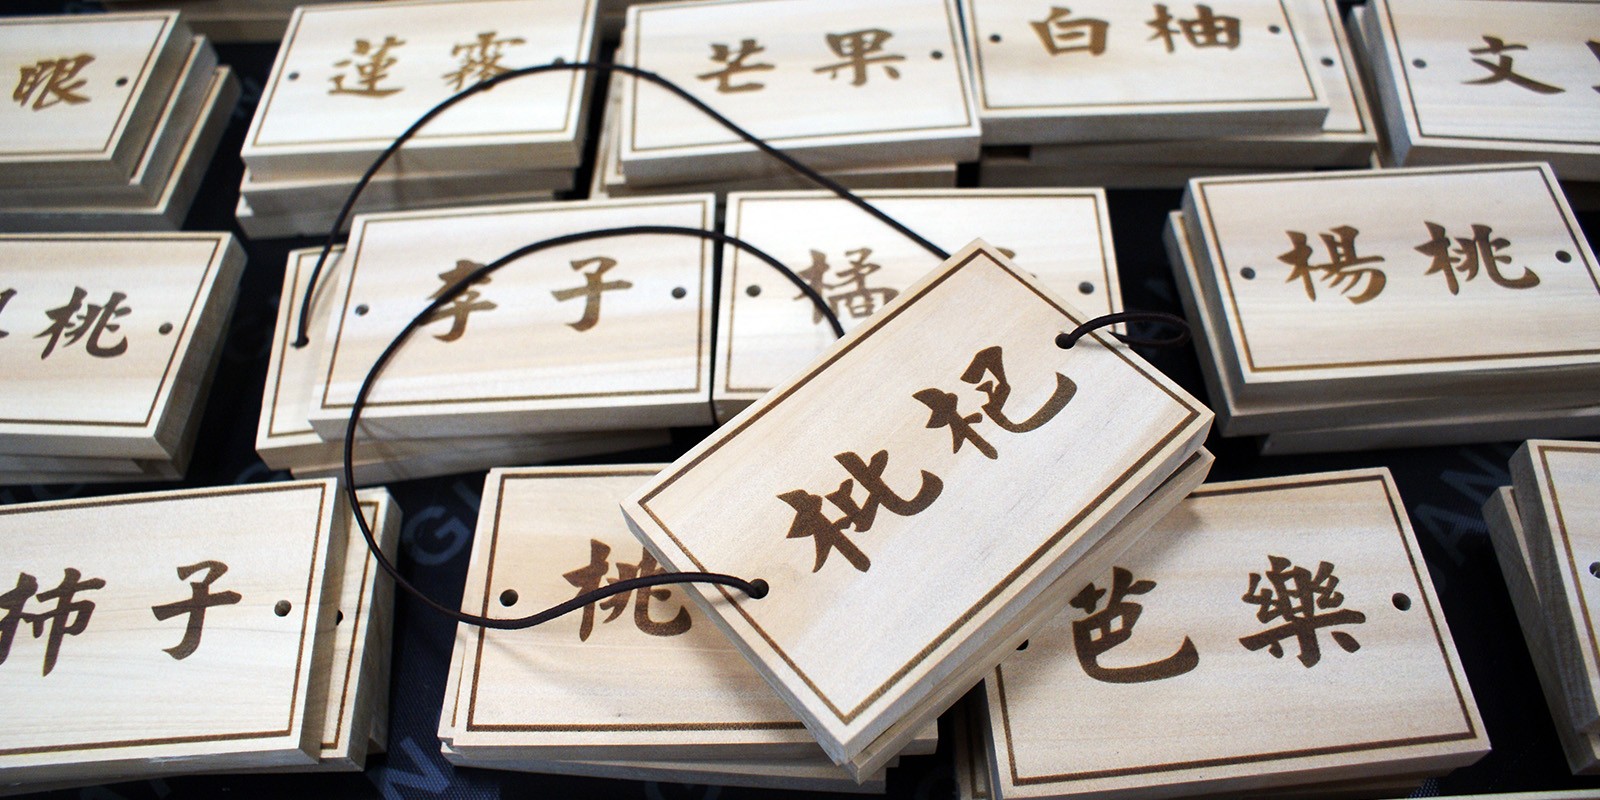 眼
蓮霧
芒果
白柚
文
桃
李子
橘
楊桃
枇杷
柿子
桃
芭樂